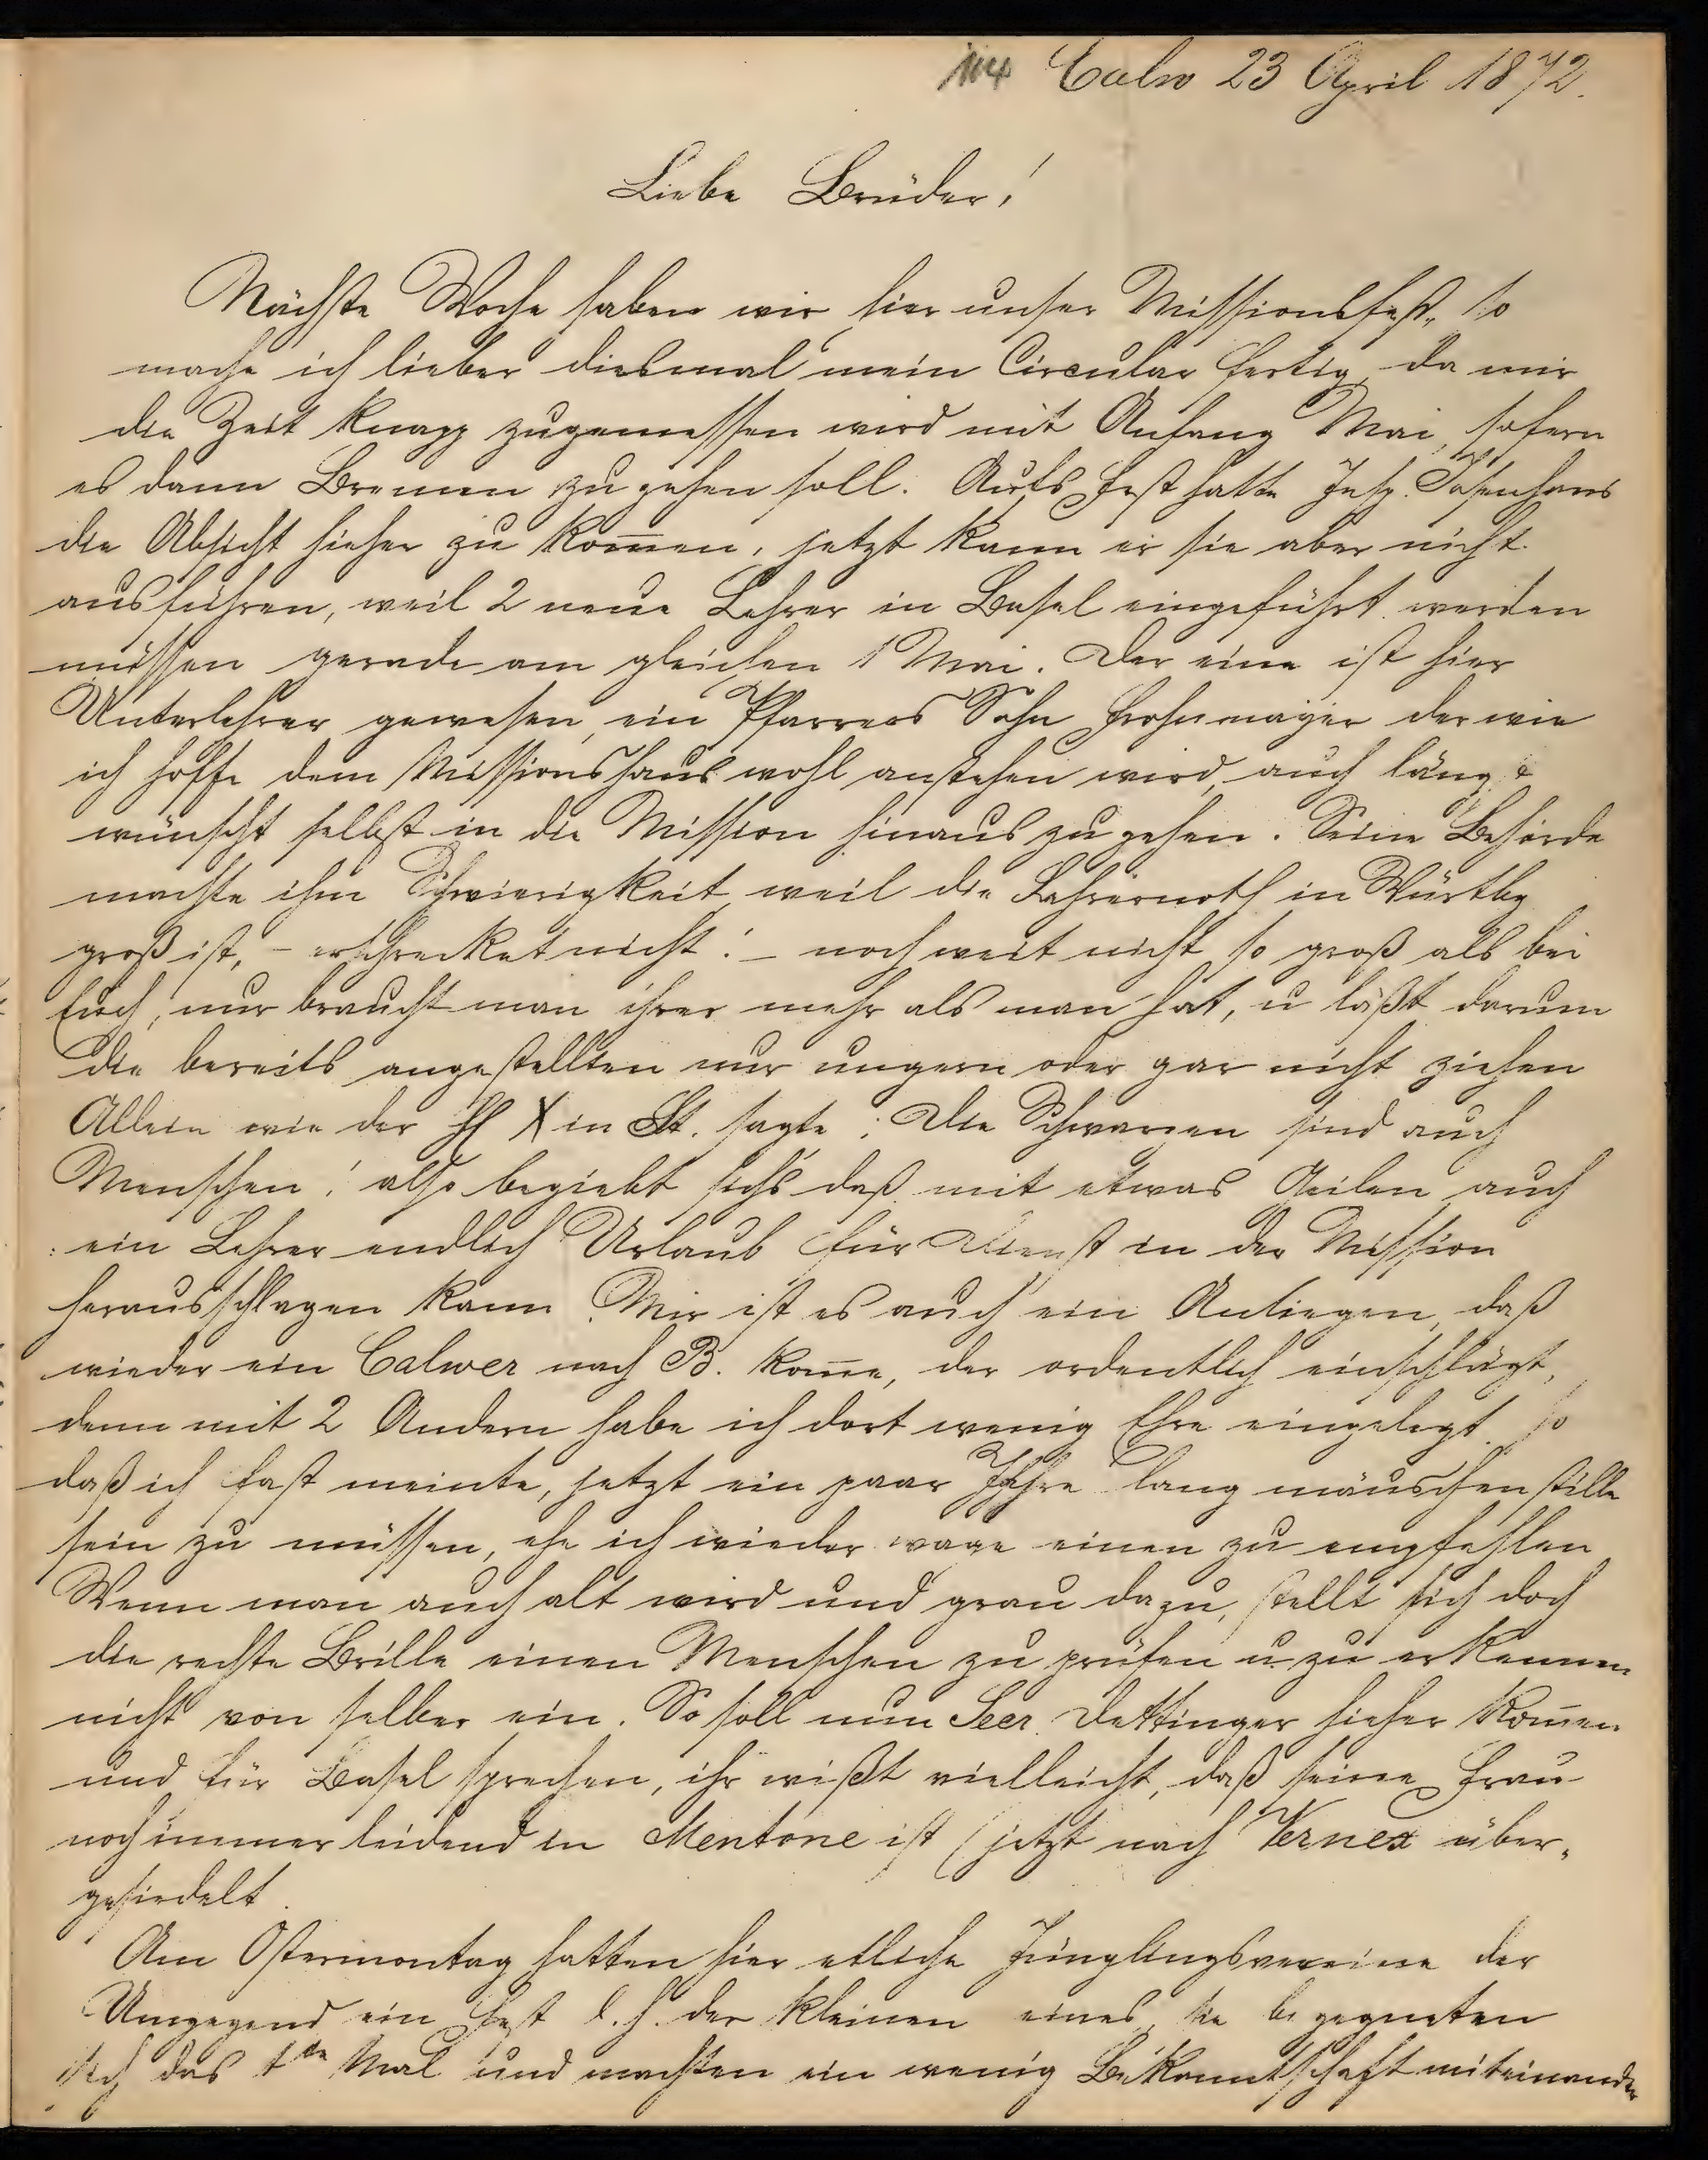 Calw 23 April 1872.
Liebe Brüder!
Nächste Woche haben wir hier unser Missionsfest, so
mache ich lieber diesmal mein Circular fertig, da mir
die Zeit knapp zugemessen wird mit Anfang Mai, sofern
es dann Bremen zu gehen soll. Aufs Fest hatte Insp. Josenhans
die Absicht hieher zu kom̄en, jetzt kann er sie aber nicht
ausführen, weil 2 neue Lehrer in Basel eingeführt werden
müssen gerade am gleichen 1 Mai. Der eine ist hier
Unterlehrer gewesen, ein Pfarrers Sohn Frohnmayer der wie
ich hoffe dem Missionshaus wohl anstehen wird, auch längst
wünscht selbst in die Mission hinaus zu gehen. Seine Behörde
machte ihm Schwierigkeit weil die Lehrernoth in Würtbg
groß ist, – erschrecket nicht! – noch weit nicht so groß als bei
Euch, nur braucht man ihrer mehr als man hat, u läßt darum
die bereits angestellten nur ungern oder gar nicht ziehen
Allein wie der HE X in St. sagte: Die Schwarzen sind auch
Menschen! also begiebt sichs daß mit etwas Geilen auch
ein Lehrer endlich Urlaub für Dienst in der Mission
herausschlagen kann. Mir ist es auch ein Anliegen, daß
wieder ein Calwer nach B. kom̄e, der ordentlich einschlägt,
denn mit 2 Andern habe ich dort wenig Ehre eingelegt so
daß ich fast meinte, jetzt ein paar Jahre lang mäuschenstille
sein zu müssen, ehe ich wieder wage einen zu empfehlen
Wenn man auch alt wird und grau dazu, stellt sich doch
die rechte Brille einen Menschen zu prüfen u. zu erkennen
nicht von selber ein. So soll nun Secr. Dettinger hieher kom̄en
und für Basel sprechen, ihr wißt vielleicht, daß seine Frau
noch immer leidend in Mentone ist (jetzt nach Vernex über-
gesiedelt.
Am Ostermontag hatten hier etliche Jünglingsvereine der
Umgegend ein Fest d. h. der kleinen eines, sie begegneten
sich das 1te Mal und machten ein wenig Bekanntschaft miteinander